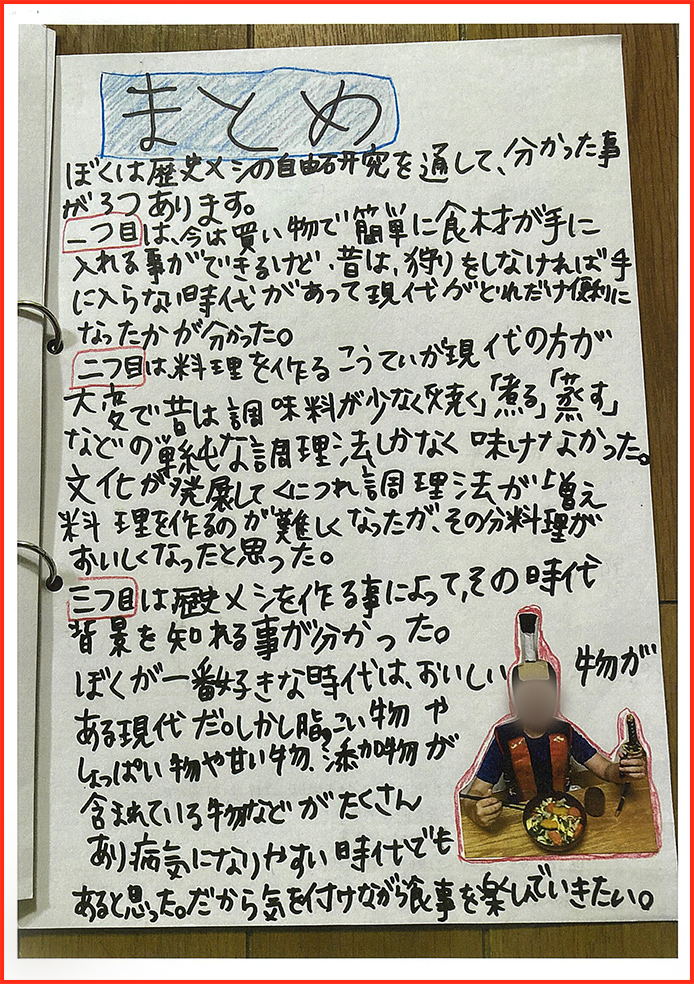 まとめ
ぼくは歴史メシの自由研究を通して、分かった事
が3つあります。
一つ目は、今は買い物で簡単に食材が手に
入れる事ができるけど、昔は、狩りをしなければ手
に入らない時代があって現代がどれだけ便利に
なったかが分かった。
二つ目は、料理を作るこうていが現代の方が
大変で昔は調味料が少なく「焼く」「煮る」「蒸す」
などの単純な調理法しかなく味けなかった。
文化が発展してくにつれ調理法が増え
料理を作るのが難しくなったが、その分料理が
おいしくなったと思った。
三つ目は歴史メシを作る事によって、その時代
背景を知れる事が分かった。
ぼくが一番好きな時代は、おいしい物が
ある現代だ。しかし脂っこい物や
しょっぱい物や甘い物、添加物が
含まれている物などがたくさん
あり病気になりやすい時代でも
あると思った。だから気を付けながら食事を楽しんでいきたい。